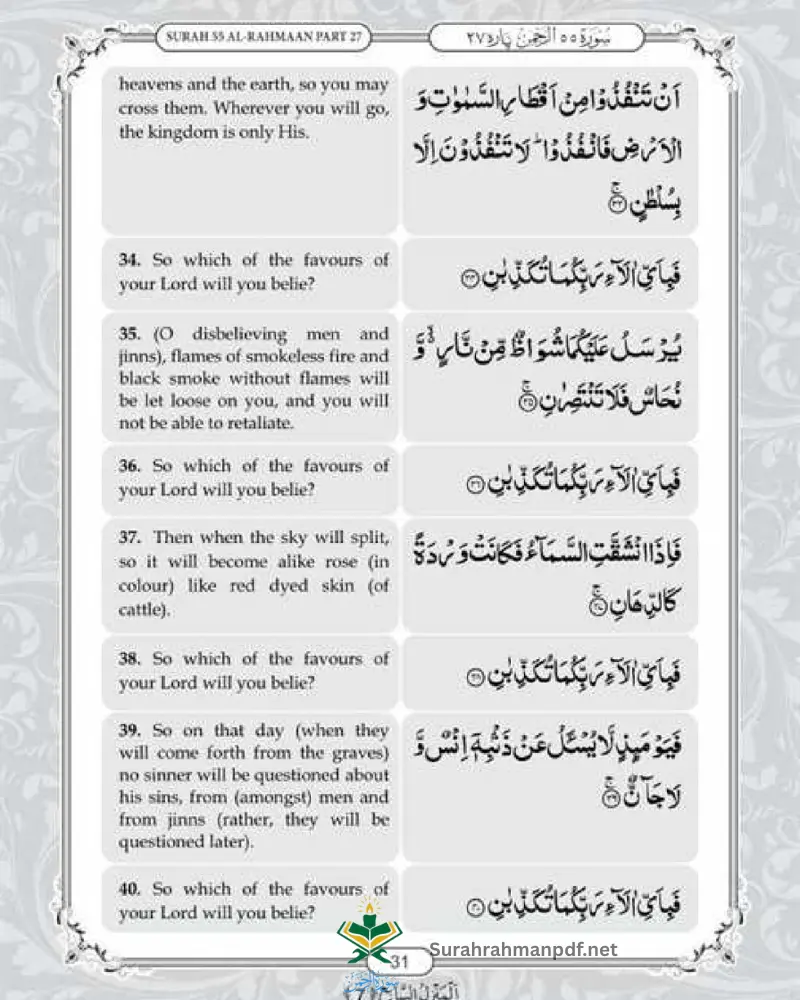 SURAH 55 AL-RAHMAAN PART 27
سُوْرَة ٥٥ اَلرَّحْمٰنُ پَارَه ٢٧
heavens and the earth, so you may
cross them. Wherever you will go,
the kingdom is only His.
اَنْ تَنْفُذُوْا مِنْ اَقْطَارِ السَّمٰوٰتِ وَ
الْاَرْضِ فَانْفُذُوْا ؕ لَا تَنْفُذُوْنَ اِلَّا
بِسُلْطٰنٍ ۚ ﴿٣٣﴾
34. So which of the favours of
your Lord will you belie?
فَبِاَيِّ اٰلَآءِ رَبِّكُمَا تُكَذِّبٰنِ ﴿٣٤﴾
35. (O disbelieving men and
jinns), flames of smokeless fire and
black smoke without flames will
be let loose on you, and you will
not be able to retaliate.
يُرْسَلُ عَلَيْكُمَا شُوَاظٌ مِّنْ نَّارٍ ۙ۬ وَّ
نُحَاسٌ فَلَا تَنْتَصِرٰنِ ۚ ﴿٣٥﴾
36. So which of the favours of
your Lord will you belie?
فَبِاَيِّ اٰلَآءِ رَبِّكُمَا تُكَذِّبٰنِ ﴿٣٦﴾
37. Then when the sky will split,
so it will become alike rose (in
colour) like red dyed skin (of
cattle).
فَاِذَا انْشَقَّتِ السَّمَآءُ فَكَانَتْ وَرْدَةً
كَالدِّهَانِ ۚ ﴿٣٧﴾
38. So which of the favours of
your Lord will you belie?
فَبِاَيِّ اٰلَآءِ رَبِّكُمَا تُكَذِّبٰنِ ﴿٣٨﴾
39. So on that day (when they
will come forth from the graves)
no sinner will be questioned about
his sins, from (amongst) men and
from jinns (rather, they will be
questioned later).
فَيَوْمَئِذٍ لَّا يُسْـَٔلُ عَنْ ذَنْۢبِهٖٓ اِنْسٌ وَّ
لَا جَآنٌّ ۚ ﴿٣٩﴾
40. So which of the favours of
your Lord will you belie?
فَبِاَيِّ اٰلَآءِ رَبِّكُمَا تُكَذِّبٰنِ ﴿٤٠﴾
31
Surahrahmanpdf.net